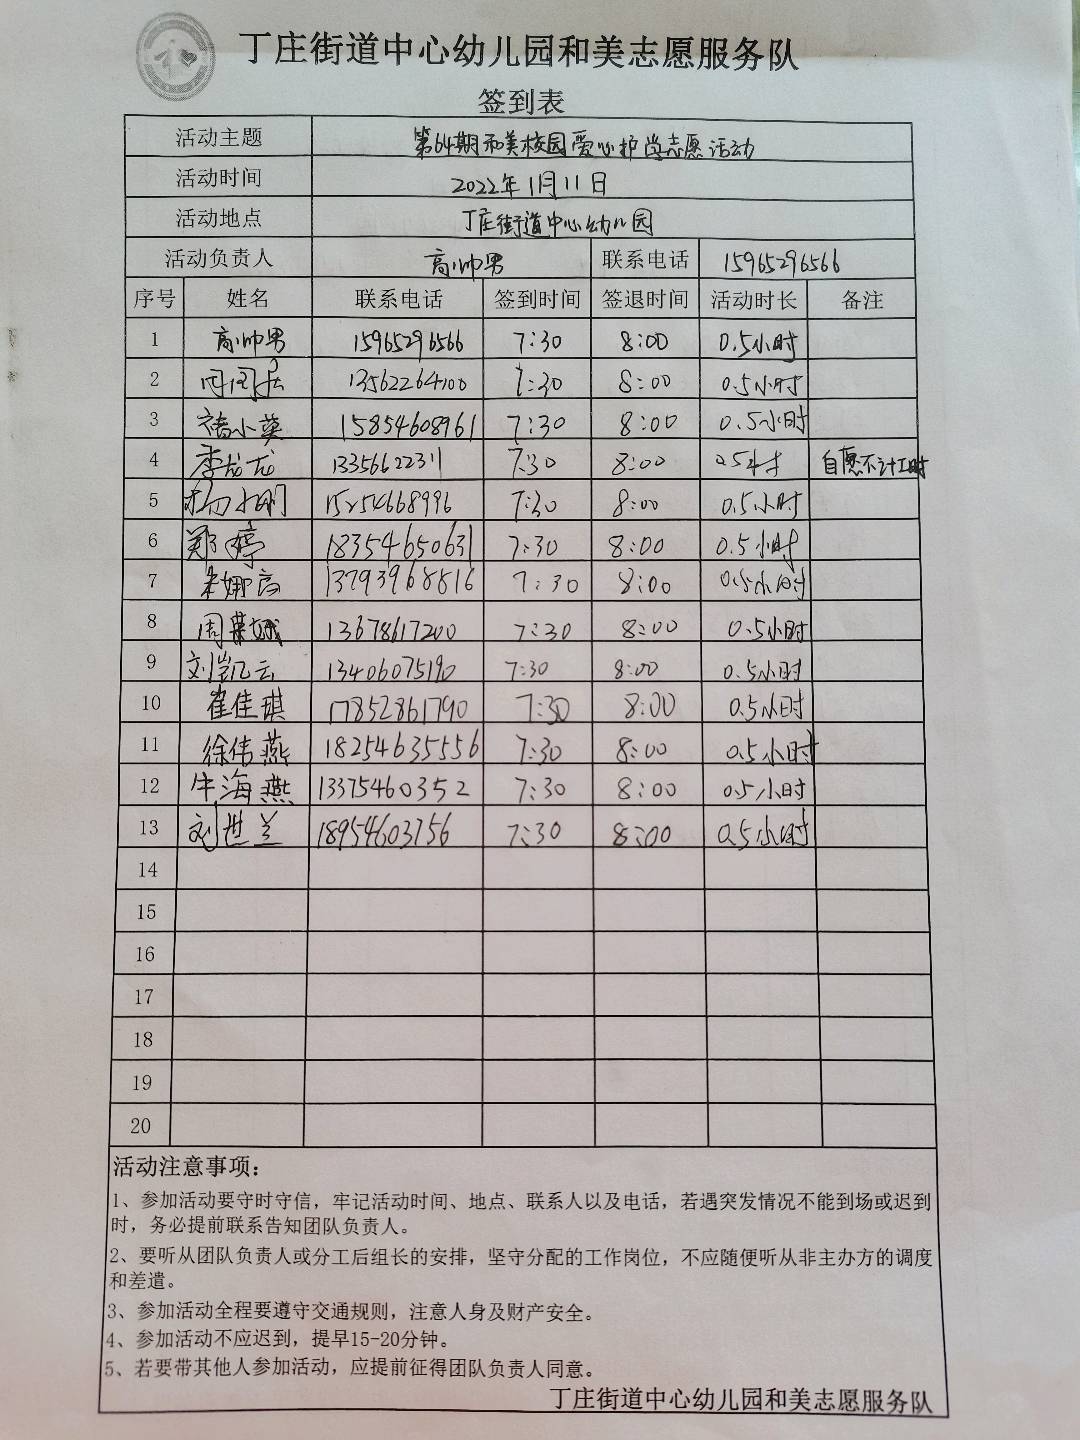 丁庄街道中心幼儿园和美志愿服务队
签到表
活动主题 第64期和美校园爱心护学志愿活动
活动时间 2022年1月11日
活动地点 丁庄街道中心幼儿园
活动负责人 高帅男 联系电话 15965296566
序号 姓名 联系电话 签到时间 签退时间 活动时长 备注
1 高帅男 15965296566 7:30 8:00 0.5小时
2 13562264100 7:30 8:00 0.5小时
3 褚小英 15854608961 7:30 8:00 0.5小时
4 李龙龙 13356622311 7:30 8:00 0.5小时 自愿不计工时
5 杨小明 15254668996 7:30 8:00 0.5小时
6 郑婷 18354650631 7:30 8:00 0.5小时
7 13793968816 7:30 8:00 0.5小时
8 周荣娥 13678617200 7:30 8:00 0.5小时
9 刘凯云 13406075190 7:30 8:00 0.5小时
10 崔佳琪 17852861790 7:30 8:00 0.5小时
11 徐伟燕 18254635556 7:30 8:00 0.5小时
12 牛海燕 13375460352 7:30 8:00 0.5小时
13 刘世兰 18954603756 7:30 8:00 0.5小时
14
15
16
17
18
19
20
活动注意事项：
1、参加活动要守时守信，牢记活动时间、地点、联系人以及电话，若遇突发情况不能到场或迟到
时，务必提前联系告知团队负责人。
2、要听从团队负责人或分工后组长的安排，坚守分配的工作岗位，不应随便听从非主办方的调度
和差遣。
3、参加活动全程要遵守交通规则，注意人身及财产安全。
4、参加活动不应迟到，提早15-20分钟。
5、若要带其他人参加活动，应提前征得团队负责人同意。
丁庄街道中心幼儿园和美志愿服务队